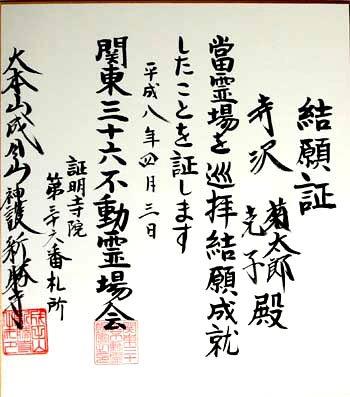 結願証
寺沢 菊太郎 殿
克子
當霊場を巡拝結願成就
したことを証します
平成八年四月三日
関東三十六不動霊場会
証明寺院
第三十六番札所
大本山成田山神護新勝寺
成田山